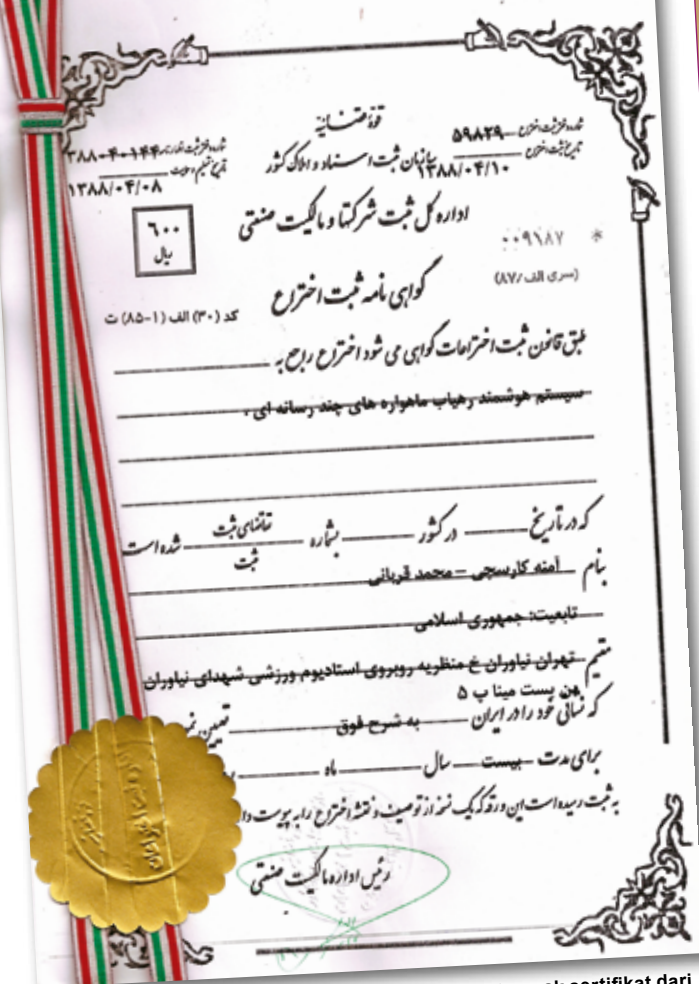 قوهٔ قضائیه
شماره دفتر ثبت اختراع ۵۹۸۲۹
تاریخ ثبت اختراع ۱۳۸۸/۰۴/۱۰
سازمان ثبت اسناد و املاک کشور
۱۳۸۸/۰۴/۰۸
اداره کل ثبت شرکتها و مالکیت صنعتی
۶۰۰
ریال
۰۰۹۱۸۷ *
(سری الف /۸۷)
گواهی نامه ثبت اختراع
کد (۳۰) الف (۱-۸۵) ت
طبق قانون ثبت اختراعات گواهی می شود اختراع راجع به
سیستم هوشمند رهیاب ماهواره های چند رسانه ای .
که در تاریخ در کشور بشماره تقاضای ثبت
ثبت شده است
بنام آمنه کارسجی – محمد قربانی
تابعیت: جمهوری اسلامی
مقیم تهران نیاوران خ منظریه روبروی استادیوم ورزشی شهدای نیاوران
بن بست مینا پ ۵
که نشانی خود را در ایران به شرح فوق تعیین
برای مدت بیست سال ماه
به ثبت رسیده است این ورقه که یک نسخه از توصیف و نقشه اختراع را به پیوست
رئیس اداره مالکیت صنعتی
sertifikat dari